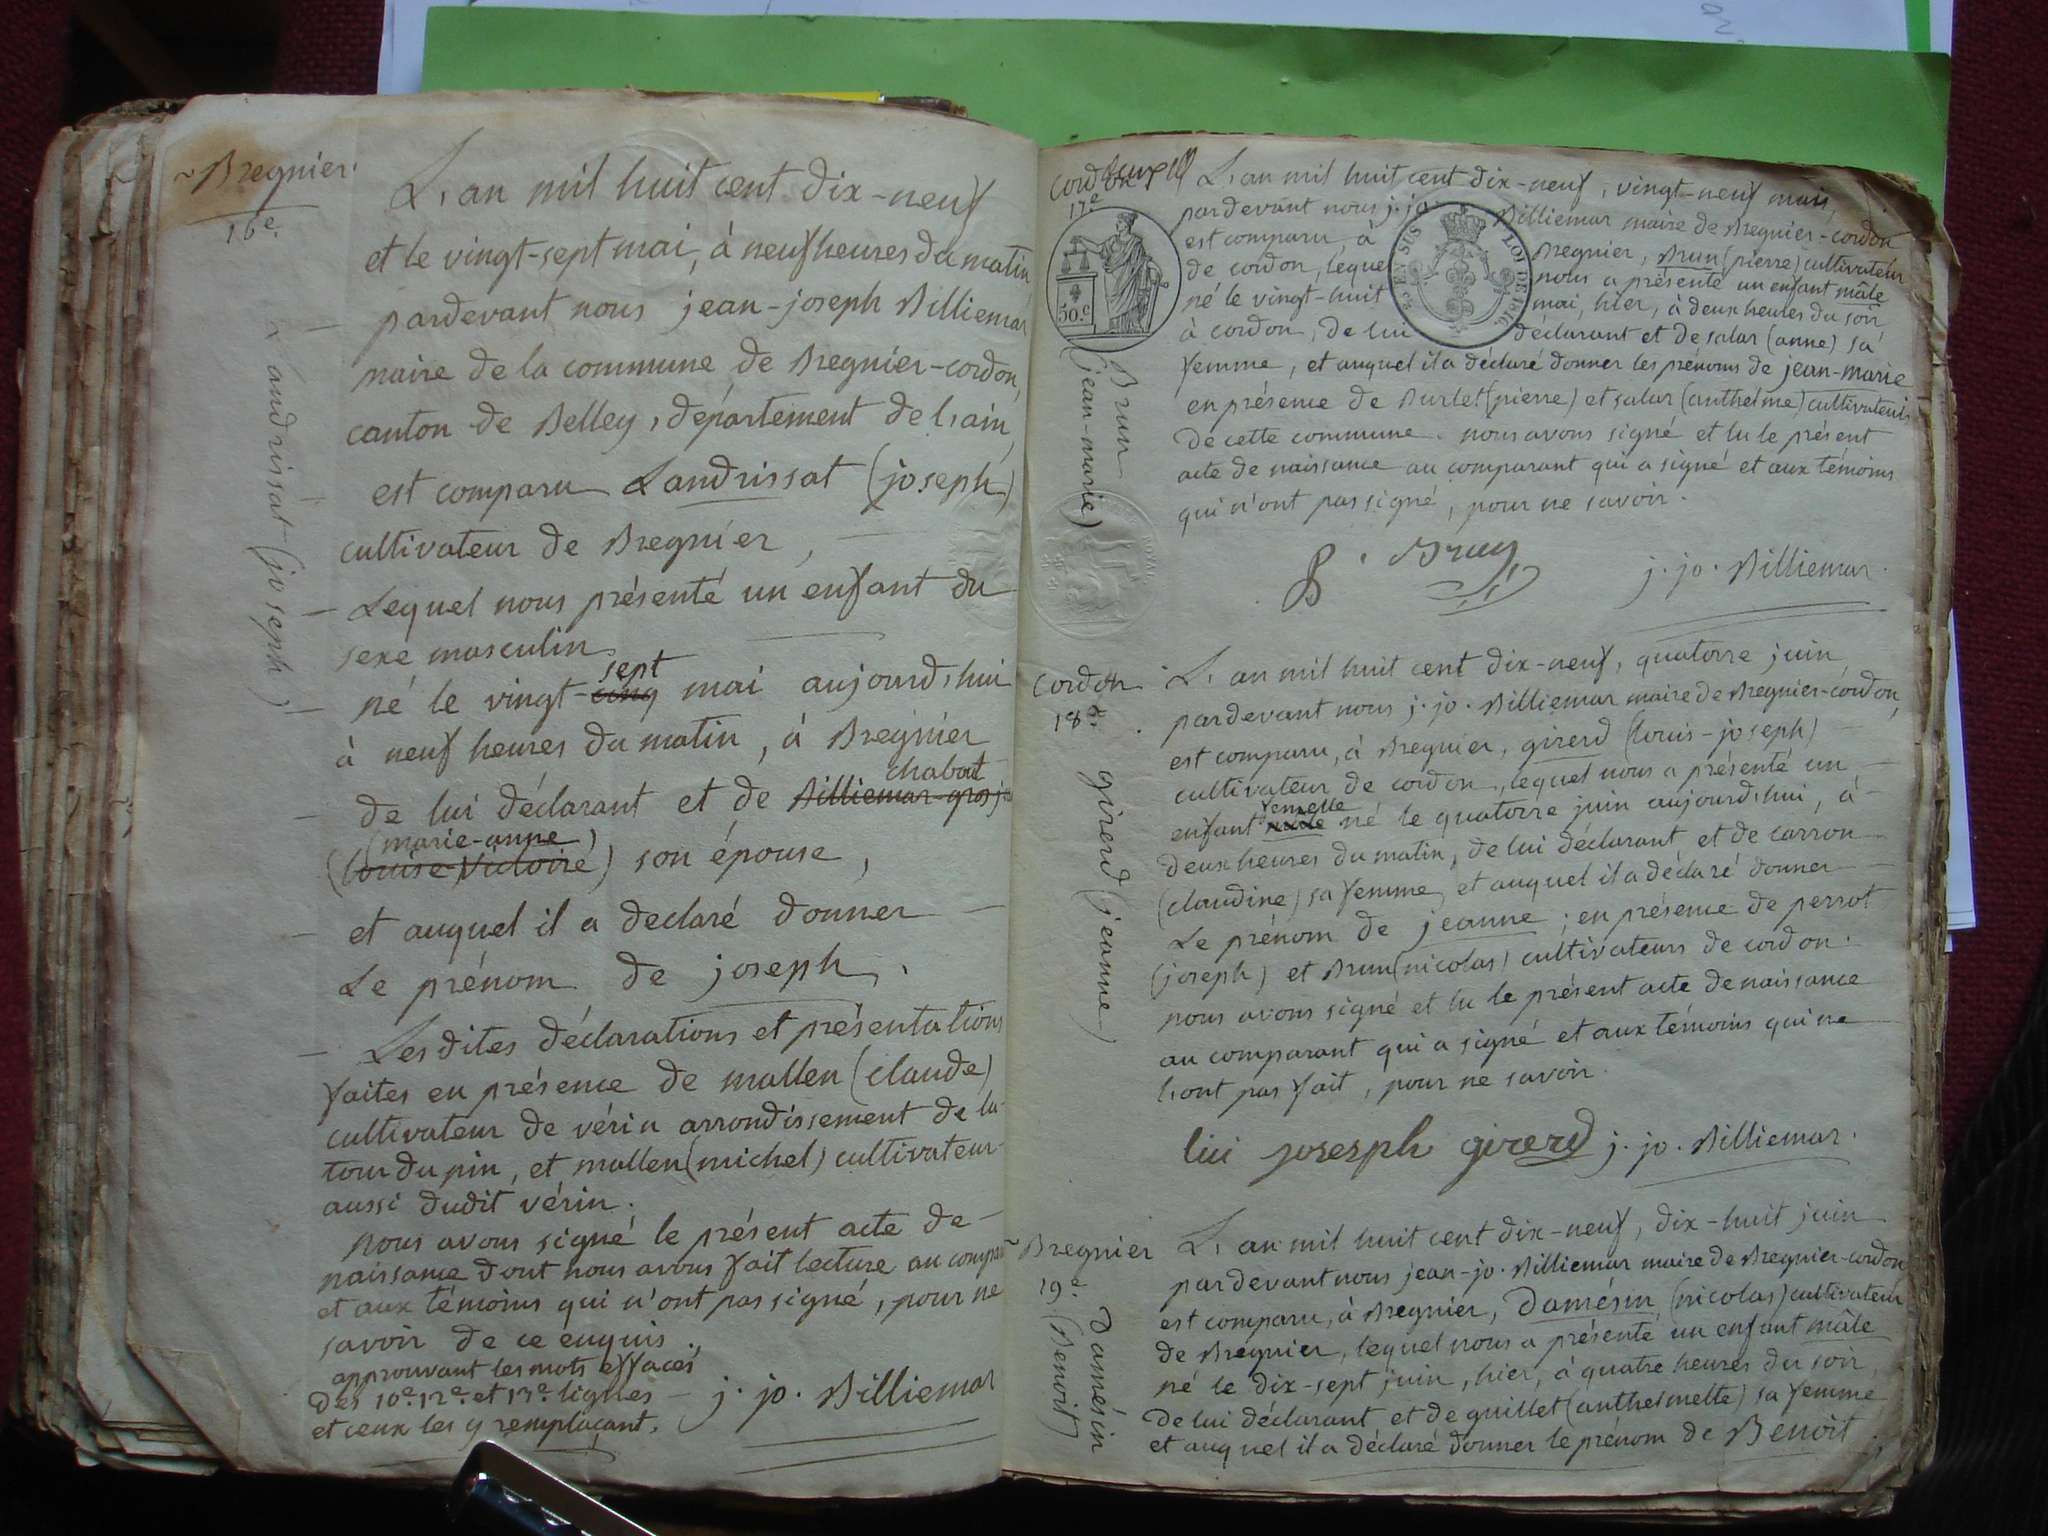 Bregnier.
16e.
Landrissat (joseph)
L'an mil huit cent dix-neuf
et le vingt-sept mai, à neuf heures du matin
pardevant nous jean-joseph Billiemar
maire de la commune de Bregnier-cordon,
canton de Belley, département de l'ain,
est comparu Landrissat (joseph)
cultivateur de Bregnier,
Lequel nous présenté un enfant du
sexe masculin
sept
né le vingt-cinq mai aujourd'hui
à neuf heures du matin, à Bregnier
chabout
de lui déclarant et de Billiemar-gros j
(marie-anne)
(louise-Victoire) son épouse,
et auquel il a declaré donner
Le prénom de joseph.
Les dites déclarations et présentations
faites en présence de mallen (claude)
cultivateur de vérin arrondissement de la
tour du pin, et mallen (michel) cultivateur
aussi dudit vérin.
nous avons signé le présent acte de
naissance dont nous avons fait lecture au compa
et aux témoins qui n'ont pas signé, pour ne
savoir de ce enquis.
approuvant les mots effacés
des 10e. 12e. et 13e. lignes
et ceux les y remplaçant.
j. jo. Billiemar
Cordon
17e.
Brun
(jean-marie)
50.c
EN SUS
LOI DE 1816.
L'an mil huit cent dix-neuf, vingt-neuf mai,
pardevant nous j. jo. Billiemar maire de Bregnier-cordon
est comparu, à Bregnier, Brun (pierre) cultivateur
de cordon, lequel nous a présenté un enfant mâle
né le vingt-huit mai, hier, à deux heures du soir
à cordon, de lui déclarant et de salar (anne) sa
femme, et auquel il a déclaré donner les prénoms de jean-marie
en présence de Burlet (pierre) et salar (anthelme) cultivateurs
de cette commune. nous avons signé et lu le présent
acte de naissance au comparant qui a signé et aux témoins
qui n'ont pas signé, pour ne savoir.
P. Brun
j. jo. Billiemar.
Cordon
18e.
girerd (jeanne)
L'an mil huit cent dix-neuf, quatorze juin
pardevant nous j. jo. Billiemar maire de Bregnier-cordon,
est comparu, à Bregnier, girerd (louis-joseph)
cultivateur de cordon, lequel nous a présenté un
femelle
enfant mâle né le quatorze juin aujourd'hui, à
deux heures du matin, de lui déclarant et de carron
(claudine) sa femme, et auquel il a déclaré donner
Le prénom de jeanne; en présence de perrot
(joseph) et Brun (nicolas) cultivateurs de cordon.
nous avons signé et lu le présent acte de naissance
au comparant qui a signé et aux témoins qui ne
l'ont pas fait, pour ne savoir.
lui josesph girerd j. jo. Billiemar.
Bregnier
19e.
Damésin
(Benoit)
L'an mil huit cent dix-neuf, dix-huit juin
pardevant nous jean-jo. Billiemar maire de Bregnier-cordon
est comparu, à Bregnier, Damésin (nicolas) cultivateur
de Bregnier, lequel nous a présenté un enfant mâle
né le dix-sept juin, hier, à quatre heures du soir,
de lui déclarant et de guillet (anthelmette) sa femme
et auquel il a déclaré donner le prénom de Benoit.